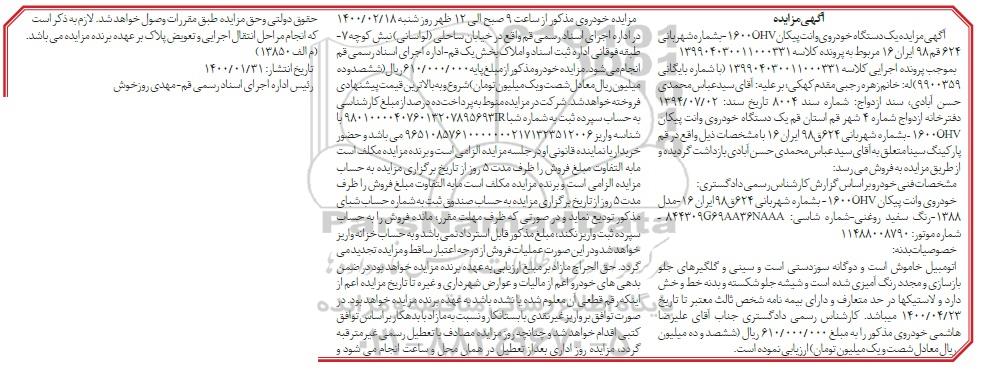 آگهی مزایده
آگهی مزایده یک دستگاه خودروی وانت پیکان ۱۶۰۰OHV-بشماره شهربانی
۶۲۴ق۹۸ ایران ۱۶ مربوط به پرونده کلاسه ۱۳۹۹۰۴۰۳۰۰۱۱۰۰۰۳۳۱
بموجب پرونده اجرایی کلاسه ۱۳۹۹۰۴۰۳۰۰۱۱۰۰۰۳۳۱ (با شماره بایگانی
۹۹۰۰۳۵۹)له: خانم زهره رجبی مقدم کهکی،بر علیه: آقای سیدعباس محمدی
حسن آبادی، سند ازدواج: شماره سند ۸۰۰۴ تاریخ سند: ۱۳۹۴/۰۷/۰۲
دفترخانه ازدواج شماره ۴ شهر قم استان قم یک دستگاه خودروی وانت پیکان
۱۶۰۰OHV -بشماره شهربانی ۶۲۴ق۹۸ ایران ۱۶ با مشخصات ذیل واقع در قم
پارکینگ سینا متعلق به آقای سیدعباس محمدی حسن آبادی بازداشت گردیده و
از طریق مزایده به فروش می رسد:
مشخصات فنی خودرو بر اساس گزارش کارشناس رسمی دادگستری:
خودروی وانت پیکان ۱۶۰۰OHV - بشماره شهربانی ۶۲۴ق۹۸ایران ۱۶-مدل
۱۳۸۸-رنگ سفید روغنی-شماره شاسی: ۸۴۴۳۰۹G۶۹AA۳۶NAAA -
شماره موتور: ۱۱۴۸۸۰۰۸۷۹۰
خصوصیات بدنه:
اتومبیل خاموش است و دوگانه سوز دستی است و سینی و گلگیرهای جلو
بازسازی و مجدد رنگ آمیزی شده است و شیشه جلو شکسته و بدنه خط و خش
دارد و لاستیکها در حد متعارف و دارای بیمه نامه شخص ثالث معتبر تا تاریخ
۱۴۰۰/۰۴/۲۳ میباشد. کارشناس رسمی دادگستری جناب آقای علیرضا
هاشمی خودروی مذکور را به مبلغ ۶۱۰/۰۰۰/۰۰۰ ریال (ششصد و ده میلیون
ریال معادل شصت و یک میلیون تومان) ارزیابی نموده است.
مزایده خودروی مذکور از ساعت ۹ صبح الی ۱۲ ظهر روز شنبه ۱۴۰۰/۰۲/۱۸
در اداره اجرای اسناد رسمی قم واقع در خیابان ساحلی (لواسانی) نبش کوچه ۷-
طبقه فوقانی اداره ثبت اسناد و املاک بخش یک قم-اداره اجرای اسناد رسمی قم
انجام می شود. مزایده خودرو مذکور از مبلغ پایه ۶۱۰/۰۰۰/۰۰۰ ریال (ششصدوده
میلیون ریال معادل شصت ویک میلیون تومان) شروع و به بالاترین قیمت پیشنهادی
فروخته خواهد شد. شرکت در مزایده منوط به پرداخت ده درصد از مبلغ کارشناسی
به حساب سپرده ثبت به شماره شبا ۹۸۰۱۰۰۰۰۴۰۷۶۰۱۳۲۰۷۸۹۵۶۹۳IR با
شناسه واریز ۹۶۵۱۰۸۵۷۶۱۰۰۰۰۰۰۰۲۱۷۱۳۲۳۵۱۲۰۰۶ می باشد و حضور
خریدار یا نماینده قانونی او در جلسه مزایده الزامی است و برنده مزایده مکلف است
مابه التفاوت مبلغ فروش را ظرف مدت ۵ روز از تاریخ برگزاری مزایده به حساب
مزایده الزامی است و برنده مزایده مکلف است مابه التفاوت مبلغ فروش را ظرف
مدت ۵ روز از تاریخ برگزاری مزایده به حساب صندوق ثبت به شماره حساب شبای
مذکور تودیع نماید و در صورتی که ظرف مهلت مقرر، مانده فروش را به حساب
سپرده ثبت واریز نکند، مبلغ مذکور قابل استرداد نمی باشد و به حساب خزانه واریز
خواهد شد و در این صورت عملیات فروش از درجه اعتبار ساقط و مزایده تجدید می
گردد. حق الحراج مازاد بر مبلغ ارزیابی به عهده برنده مزایده خواهد بود در ضمن
بدهی های خودرو اعم از مالیات و عوارض شهرداری و غیره تا تاریخ مزایده اعم از
اینکه رقم قطعی آن معلوم شده یا نشده باشد به عهده برنده مزایده خواهد بود. در
صورت توافق بر واریز غیر نقدی با بستانکار و نسبت به مازاد با بدهکار بر اساس توافق
کتبی اقدام خواهد شد و چنانچه روز مزایده مصادف با تعطیل رسمی غیر مترقبه
گردد، مزایده روز اداری بعد از تعطیل در همان محل و ساعت انجام می شود و
حقوق دولتی و حق مزایده طبق مقررات وصول خواهد شد. لازم به ذکر است
که انجام مراحل انتقال اجرایی و تعویض پلاک بر عهده برنده مزایده می باشد.
(م الف ۱۳۸۵۰)
تاریخ انتشار: ۱۴۰۰/۰۱/۳۱
رئیس اداره اجرای اسناد رسمی قم-مهدی روزخوش